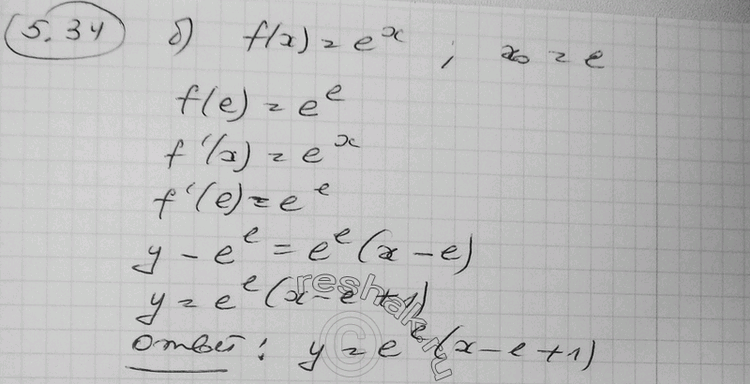 5.34 б) f(x) = e^x ; x₀ = e
f(e) = e^e
f'(x) = e^x
f'(e) = e^e
y - e^e = e^e (x - e)
y = e^e (x - e + 1)
Ответ: y = e^e (x - e + 1)
reshak.ru
©